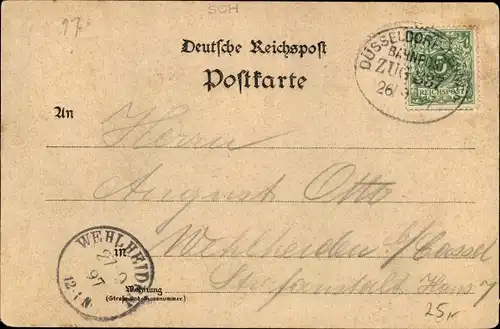 97
SCH
Deutsche Reichspost
Postkarte
DÜSSELDORF
BAHNPOST
ZUG
26/3
REICHSPOST
An
Herrn
August Otto
in Wehlheiden b/Cassel
Strafanstalt Haus 7
Wohnung
(Straße und Hausnummer)
WEHLHEIDEN
27 3
97
12-1 N.
25,-